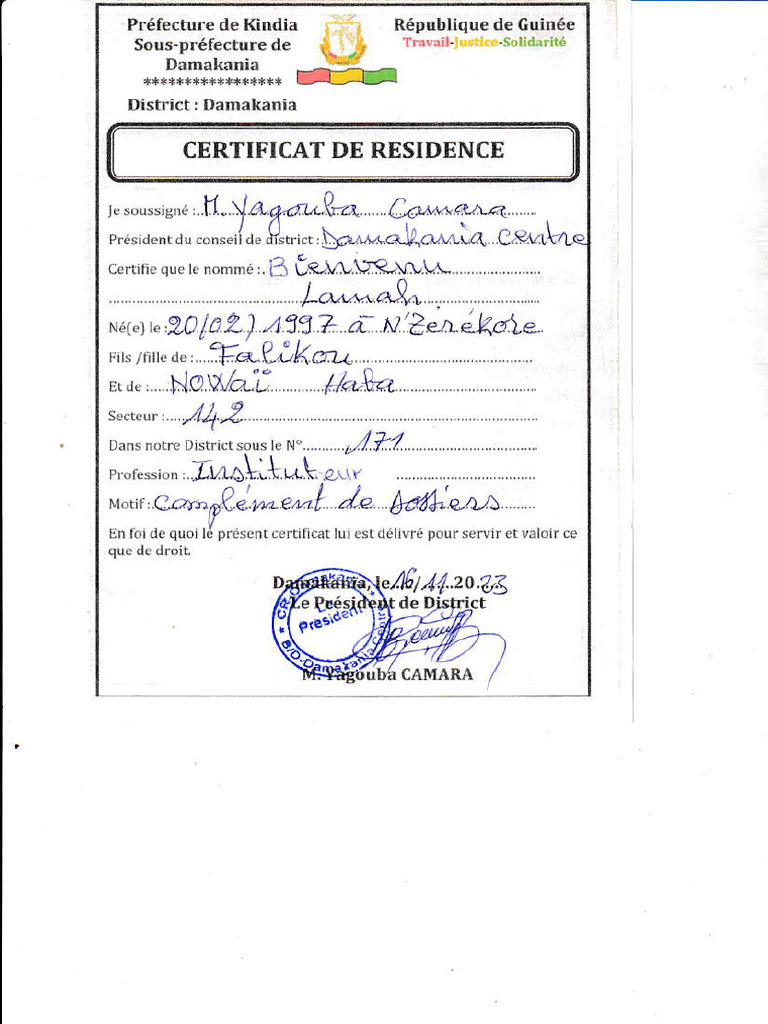 Préfecture de Kindia
Sous-préfecture de
Damakania
*****************
District : Damakania
République de Guinée
Travail-Justice-Solidarité
CERTIFICAT DE RESIDENCE
Je soussigné : M. Yagouba Camara
Président du conseil de district : Damakania centre
Certifie que le nommé : Bienvenu
Lamah
Né(e) le : 20/02/1997 à N'Zérékore
Fils /fille de : Falikou
Et de : NOWaï Haba
Secteur : 142
Dans notre District sous le N° 171
Profession : Instituteur
Motif : Complément de dossiers
En foi de quoi le présent certificat lui est délivré pour servir et valoir ce
que de droit.
Damakania, le 16/11/2023
Le Président de District
Le
Président
B/D-Damakania Centre
M. Yagouba CAMARA